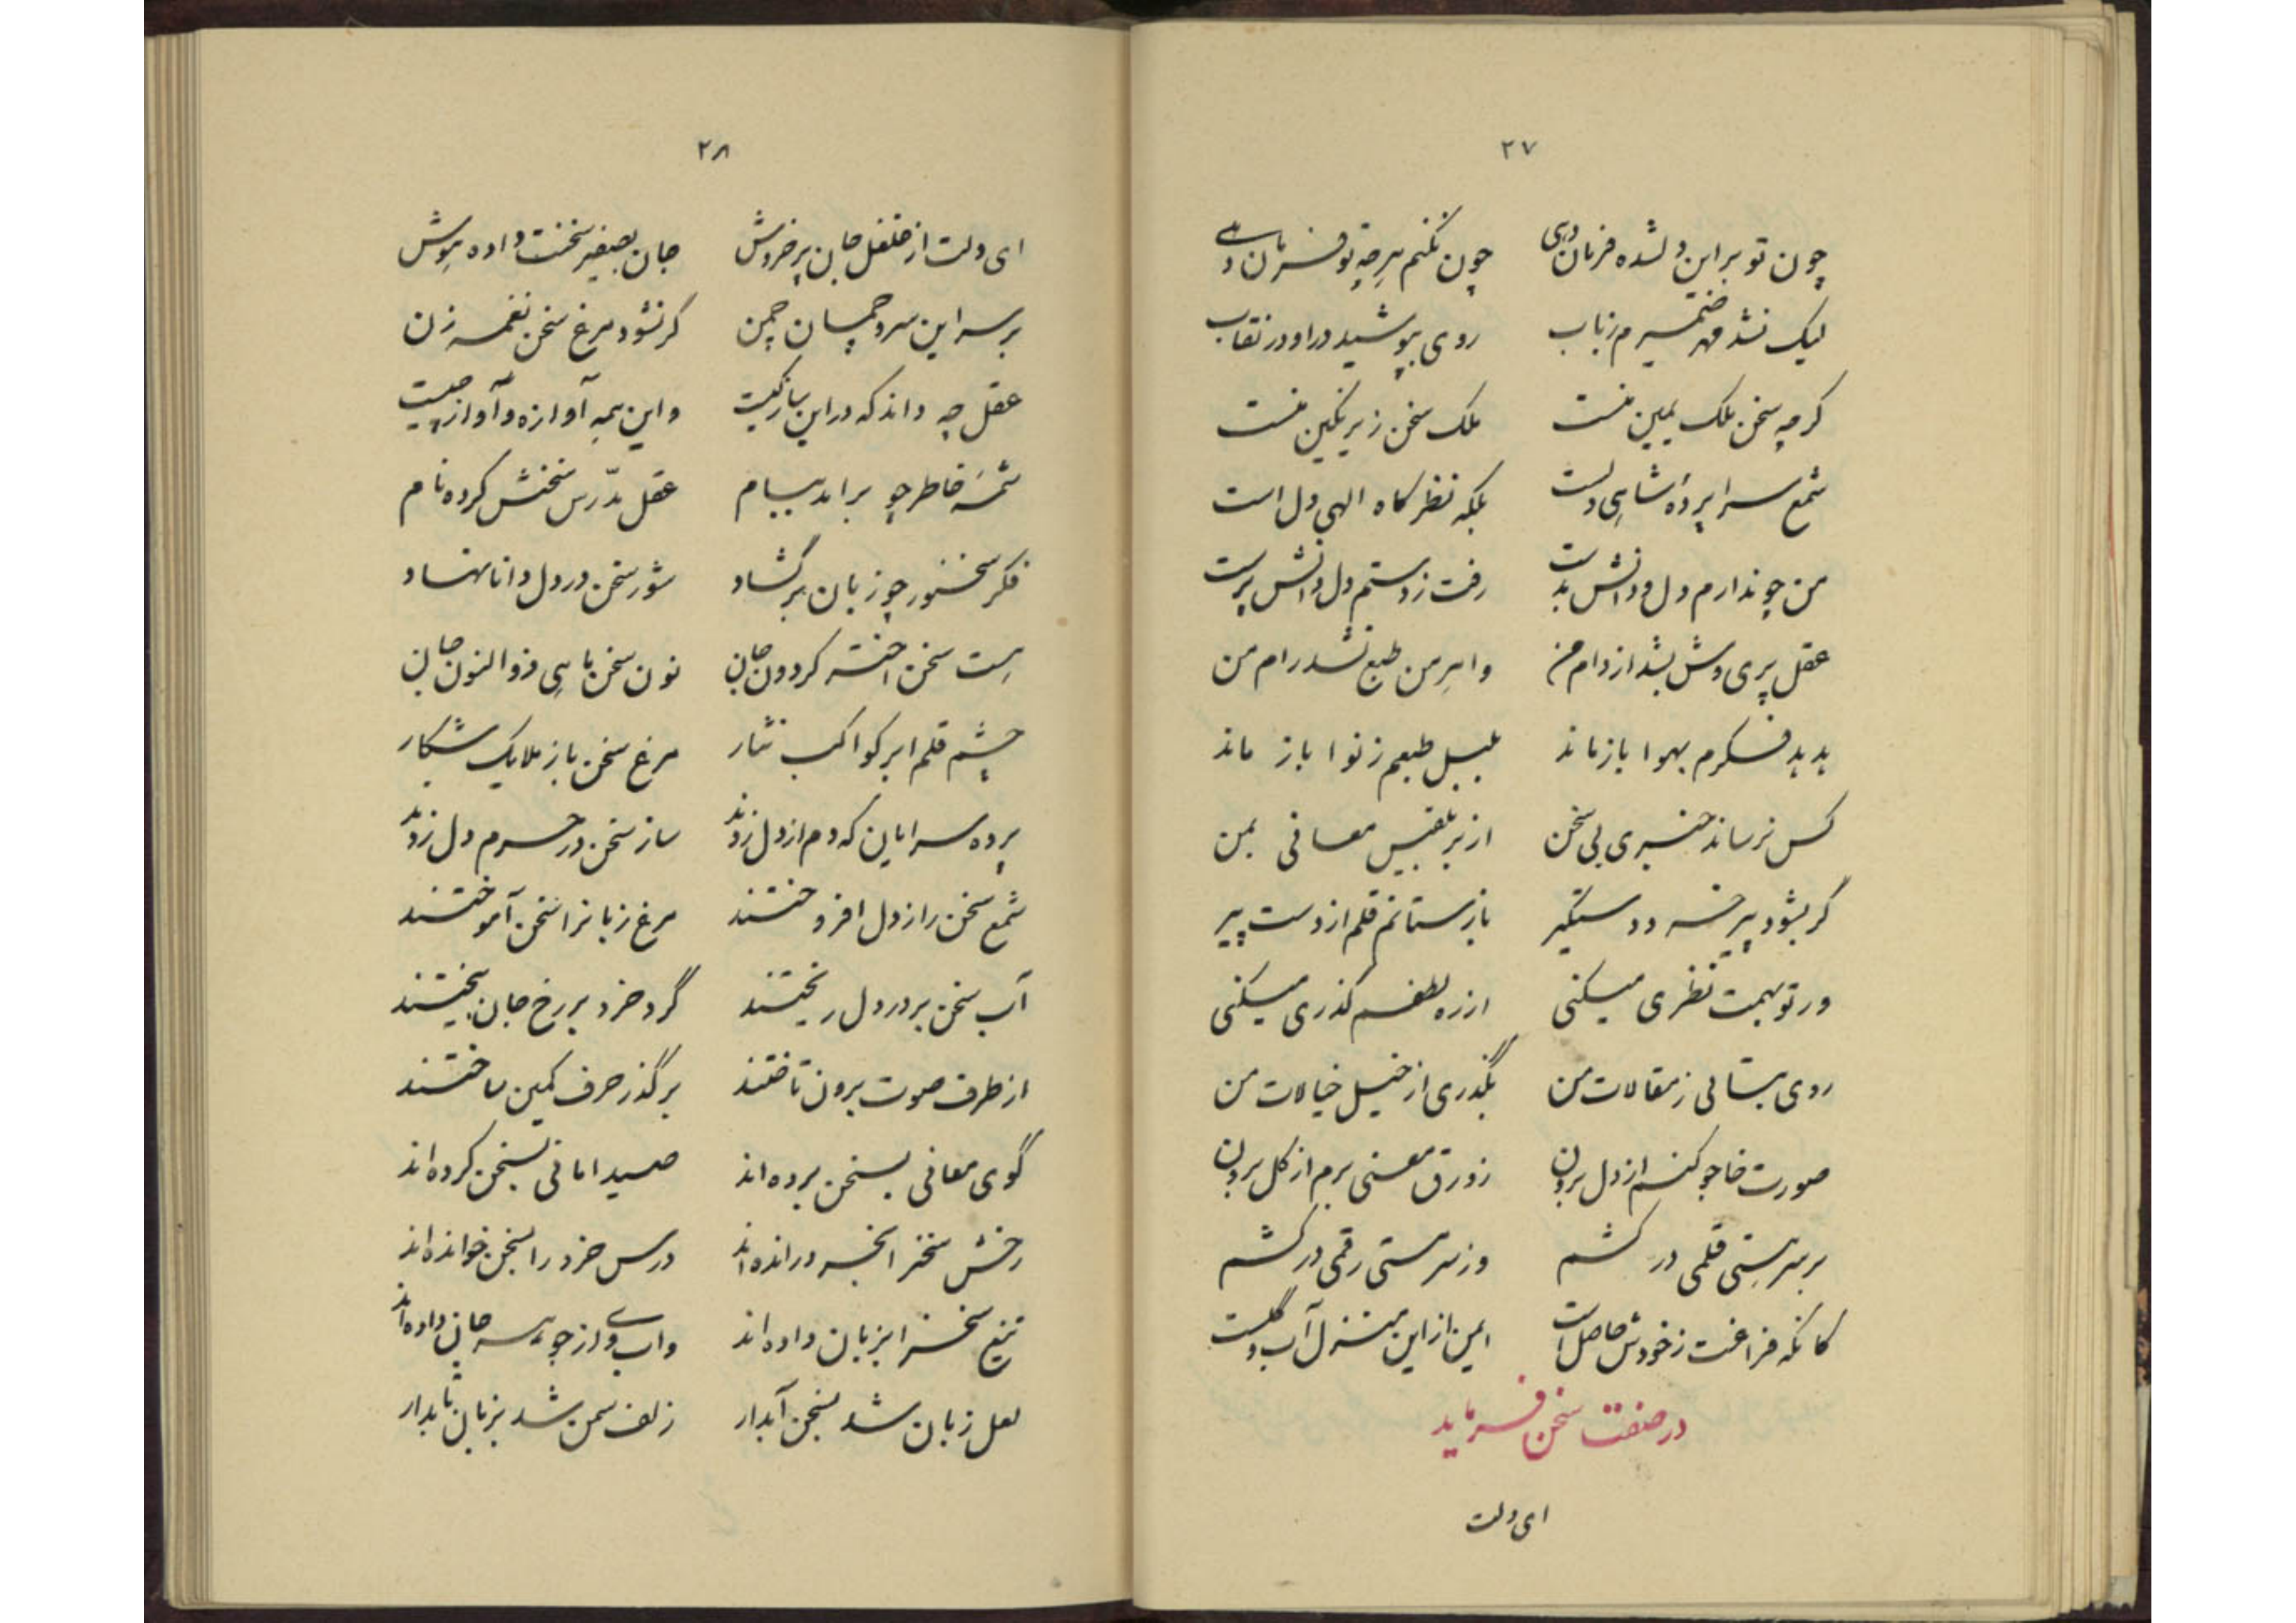 ۲۷
چون تو براین دلشده فرمان دهی چون نکنم هرچه تو فرمان دهی
لیک نشد مهر ضمیرم زباب روی بپوشید دراو در نقاب
کرچه سخن ملک یمین منست ملک سخن زیر نکین منست
شمع سراپردهٔ شاهی دلست بلکه نظرکاه الهی دل است
من چو ندارم دل و دانش بدست رفت زدستم دل دانش پرست
عقل پری وش بشد از دام من واهرمن طبع نشد رام من
هدهد فکرم بهوا بازماند بلبل طبعم زنوا باز ماند
کس نرساند خبری بی سخن از بر بلقیس معانی بمن
گر بشود پیر خرد دستگیر بازستانم قلم از دست پیر
ور تو بهمت نظری میکنی از ره لطفم گذری میکنی
روی بتابی زمقالات من بگذری از خیل خیالات من
صورت خاجو کنم از دل برون زورق معنی برم از کل برون
برسر هستی قلمی در کشم وز سر مستی رقمی در کشم
کانکه فراغت زخودش حاصل است ایمن از این منزل آب و گلست
در صفت سخن فرماید
ای دلت
۲۸
ای دلت از غلغل جان پرخروش جان بصفیر سخنت داده هوش
برسر این سرو چمان چمن کرنشود مرغ سخن نغمه زن
عقل چه داند که دراین باز کیست واین همه آوازه و آواز چیست
شمسهٔ خاطر چو براید ببام عقل مدّرس سخنش کرده نام
فکر سخنور چو زبان برگشاد شور سخن در دل دانا نهاد
هست سخن اختر کردون جان نون سخن ماهی ذوالنون جان
چشم قلم ابر کواکب نثار مرغ سخن باز ملایک شکار
پرده سرایان که دم از دل زدند ساز سخن در حرم دل زدند
شمع سخن را ز دل افروختند مرغ زبانرا سخن آموختند
آب سخن بر در دل ریختند گرد خرد بر رخ جان بیختند
از طرف صوت برون تاختند بر گذر حرف کمین ساختند
گوی معانی بسخن برده‌اند صید امانی بسخن کرده‌اند
رخش سخنرا بخرد رانده‌اند درس خرد را بسخن خوانده‌اند
تیغ سخنرا بزبان داده‌اند واب وی از جوهر جان داده‌اند
لعل زبان شد بسخن آبدار زلف سخن شد بزبان تابدار